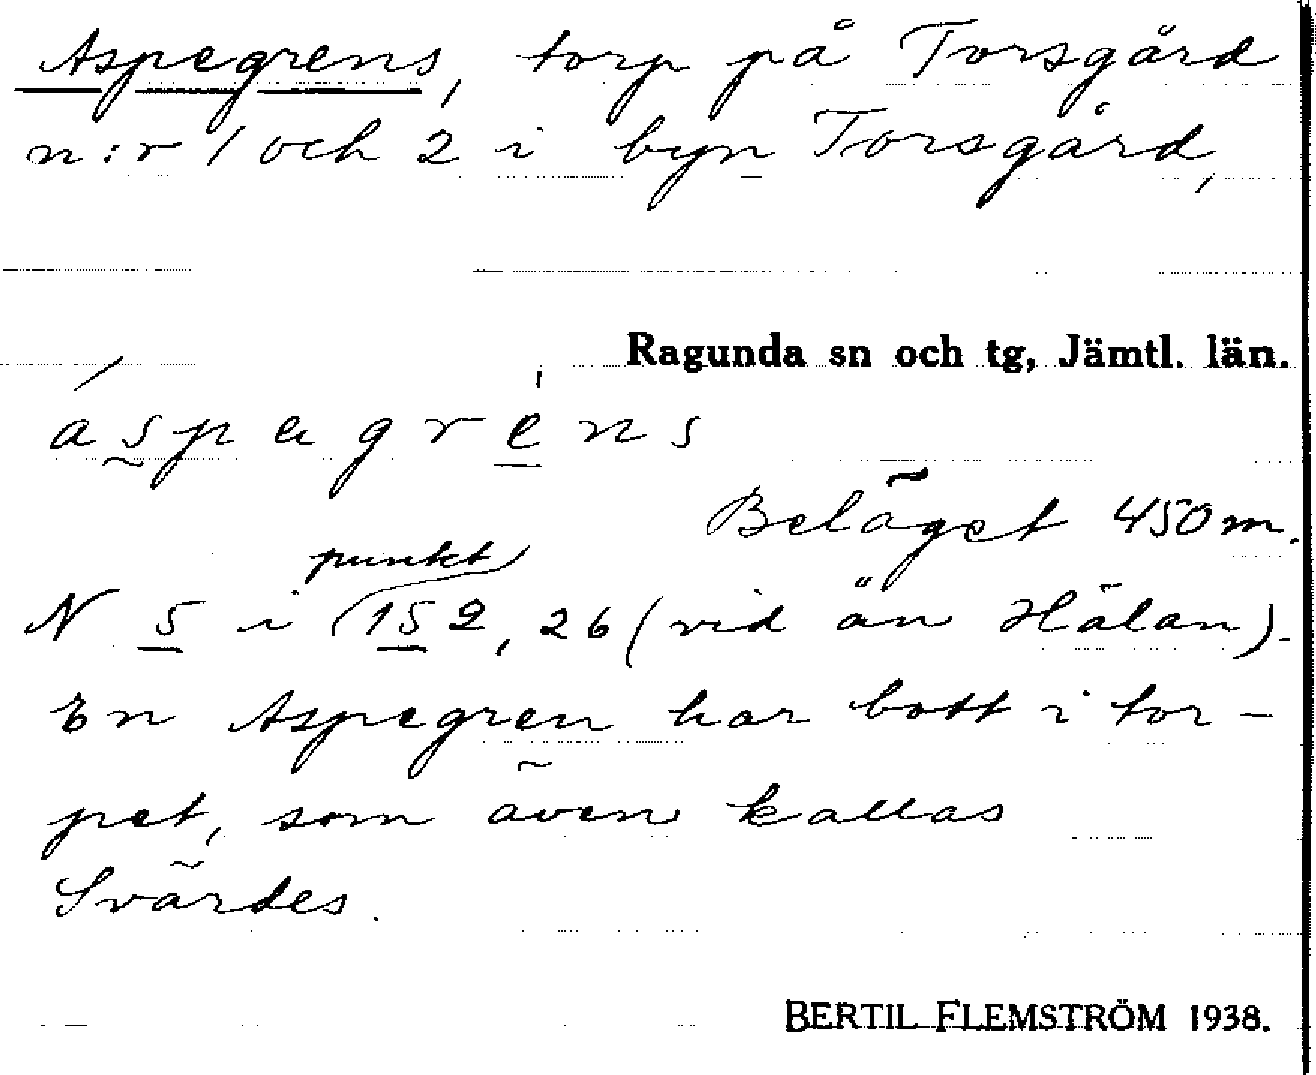 Aspegrens, torp på Torsgård
n:r 1 och 2 i byn Torsgård,
Ragunda sn och tg, Jämtl. län.
áspagrèns
Beläget 450 m.
punkt
N 5 i 152, 26 (vid ån Hälan).
En Aspegren har bott i tor-
pet, som även kallas
Svärdes.
BERTIL FLEMSTRÖM 1938.